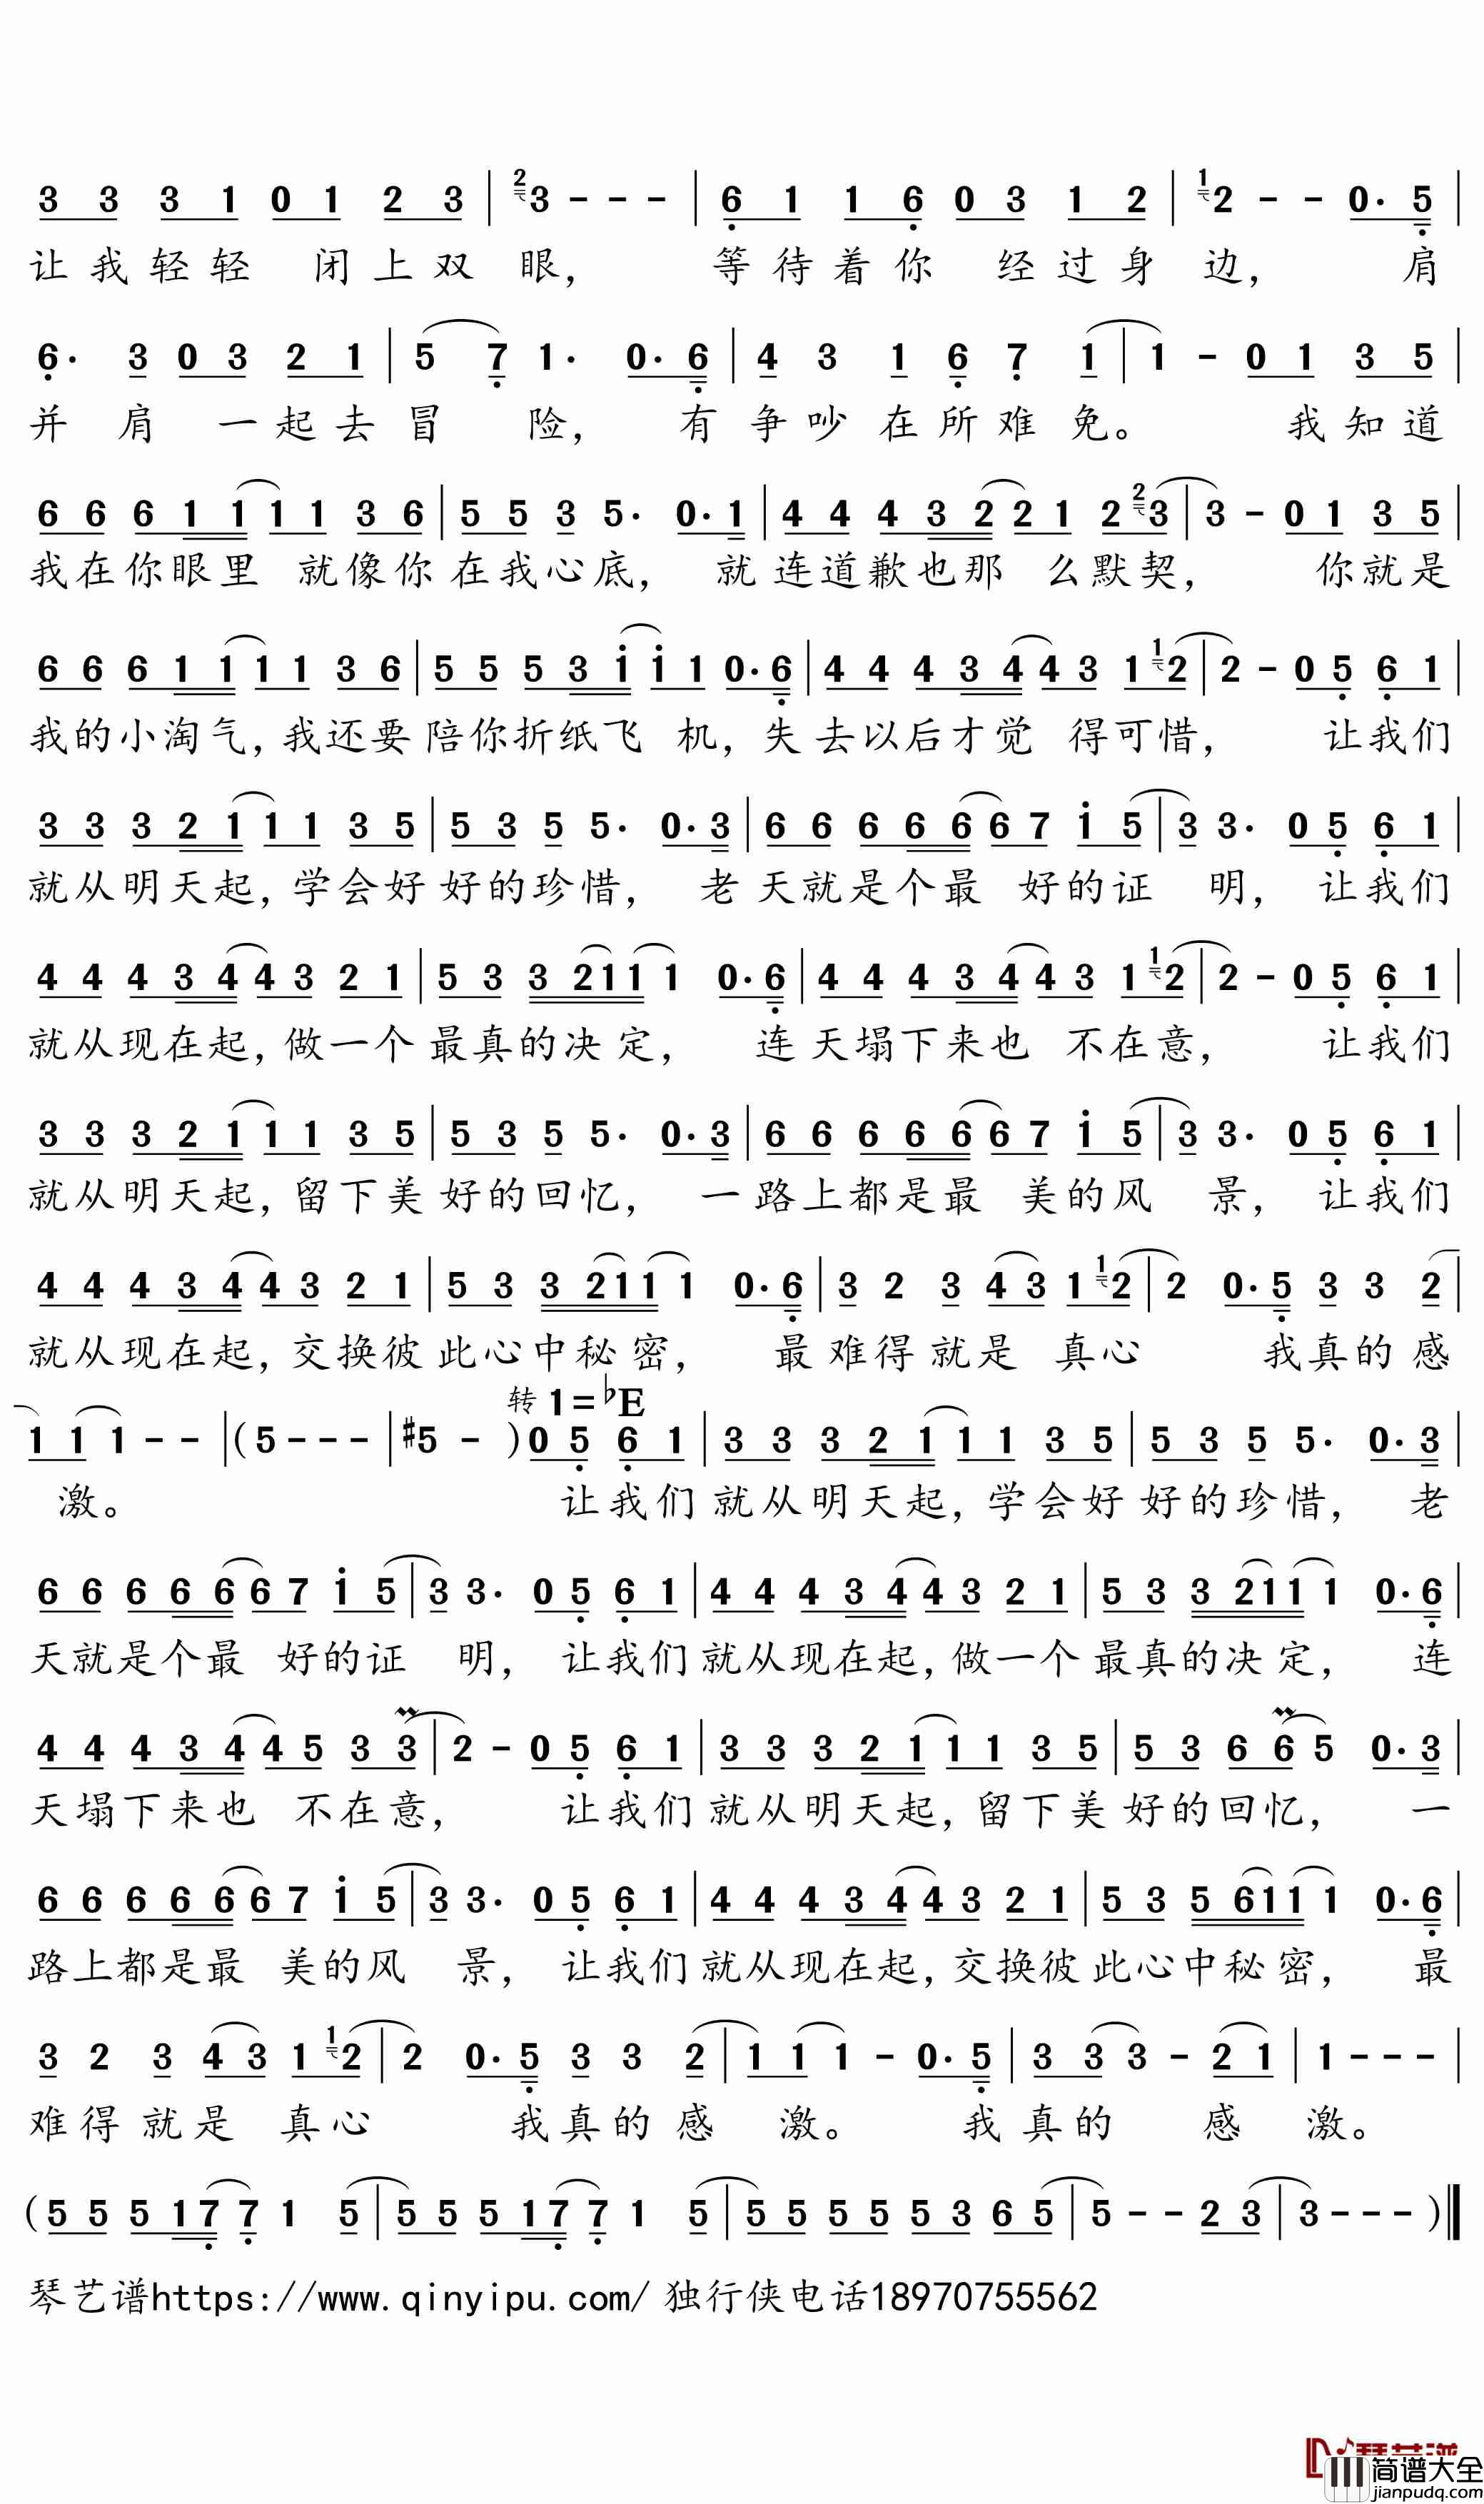 3 3 3 1 0 1 2 3 | 2 3 - - - | 6 1 1 6 0 3 1 2 | 1 2 - - 0· 5 |
让我轻轻 闭上双 眼, 等待着你 经过身 边, 肩
6· 3 0 3 2 1 | 5 7 1· 0· 6 | 4 3 1 6 7 1 | 1 - 0 1 3 5 |
并 肩 一起去冒 险, 有争吵在所难免。 我知道
6 6 6 1 1 1 1 3 6 | 5 5 3 5· 0· 1 | 4 4 4 3 2 2 1 2 2 3 | 3 - 0 1 3 5 |
我在你眼里 就像你在我心底, 就连道歉也那 么默契, 你就是
6 6 6 1 1 1 1 3 6 | 5 5 5 3 i i 1 0· 6 | 4 4 4 3 4 4 3 1 1 2 | 2 - 0 5 6 1 |
我的小淘气,我还要陪你折纸飞 机,失去以后才觉 得可惜, 让我们
3 3 3 2 1 1 1 3 5 | 5 3 5 5· 0· 3 | 6 6 6 6 6 6 7 i 5 | 3 3· 0 5 6 1 |
就从明天起,学会好好的珍惜, 老天就是个最 好的证 明, 让我们
4 4 4 3 4 4 3 2 1 | 5 3 3 2 1 1 1 0· 6 | 4 4 4 3 4 4 3 1 1 2 | 2 - 0 5 6 1 |
就从现在起,做一个最真的决定, 连天塌下来也 不在意, 让我们
3 3 3 2 1 1 1 3 5 | 5 3 5 5· 0· 3 | 6 6 6 6 6 6 7 i 5 | 3 3· 0 5 6 1 |
就从明天起,留下美好的回忆, 一路上都是最 美的风 景, 让我们
4 4 4 3 4 4 3 2 1 | 5 3 3 2 1 1 1 0· 6 | 3 2 3 4 3 1 1 2 | 2 0· 5 3 3 2 |
就从现在起,交换彼此心中秘密, 最难得就是 真心 我真的感
转 1=♭E
1 1 1 - - | (5 - - - | #5 - ) 0 5 6 1 | 3 3 3 2 1 1 1 3 5 | 5 3 5 5· 0· 3 |
激。 让我们就从明天起,学会好好的珍惜, 老
6 6 6 6 6 6 7 i 5 | 3 3· 0 5 6 1 | 4 4 4 3 4 4 3 2 1 | 5 3 3 2 1 1 1 0· 6 |
天就是个最 好的证 明, 让我们就从现在起,做一个最真的决定, 连
4 4 4 3 4 4 5 3 3 | 2 - 0 5 6 1 | 3 3 3 2 1 1 1 3 5 | 5 3 6 6 5 0· 3 |
天塌下来也 不在意, 让我们就从明天起,留下美好的回忆, 一
6 6 6 6 6 6 7 i 5 | 3 3· 0 5 6 1 | 4 4 4 3 4 4 3 2 1 | 5 3 5 6 1 1 1 0· 6 |
路上都是最 美的风 景, 让我们就从现在起,交换彼此心中秘密, 最
3 2 3 4 3 1 1 2 | 2 0· 5 3 3 2 | 1 1 1 - 0· 5 | 3 3 3 - 2 1 | 1 - - - |
难得就是 真心 我真的感 激。 我真的 感 激。
(5 5 5 1 7 7 1 5 | 5 5 5 1 7 7 1 5 | 5 5 5 5 5 3 6 5 | 5 - - 2 3 | 3 - - - )‖
琴艺谱https://www.qinyipu.com/ 独行侠电话18970755562
琴艺谱
简谱大全
jianpudq.com